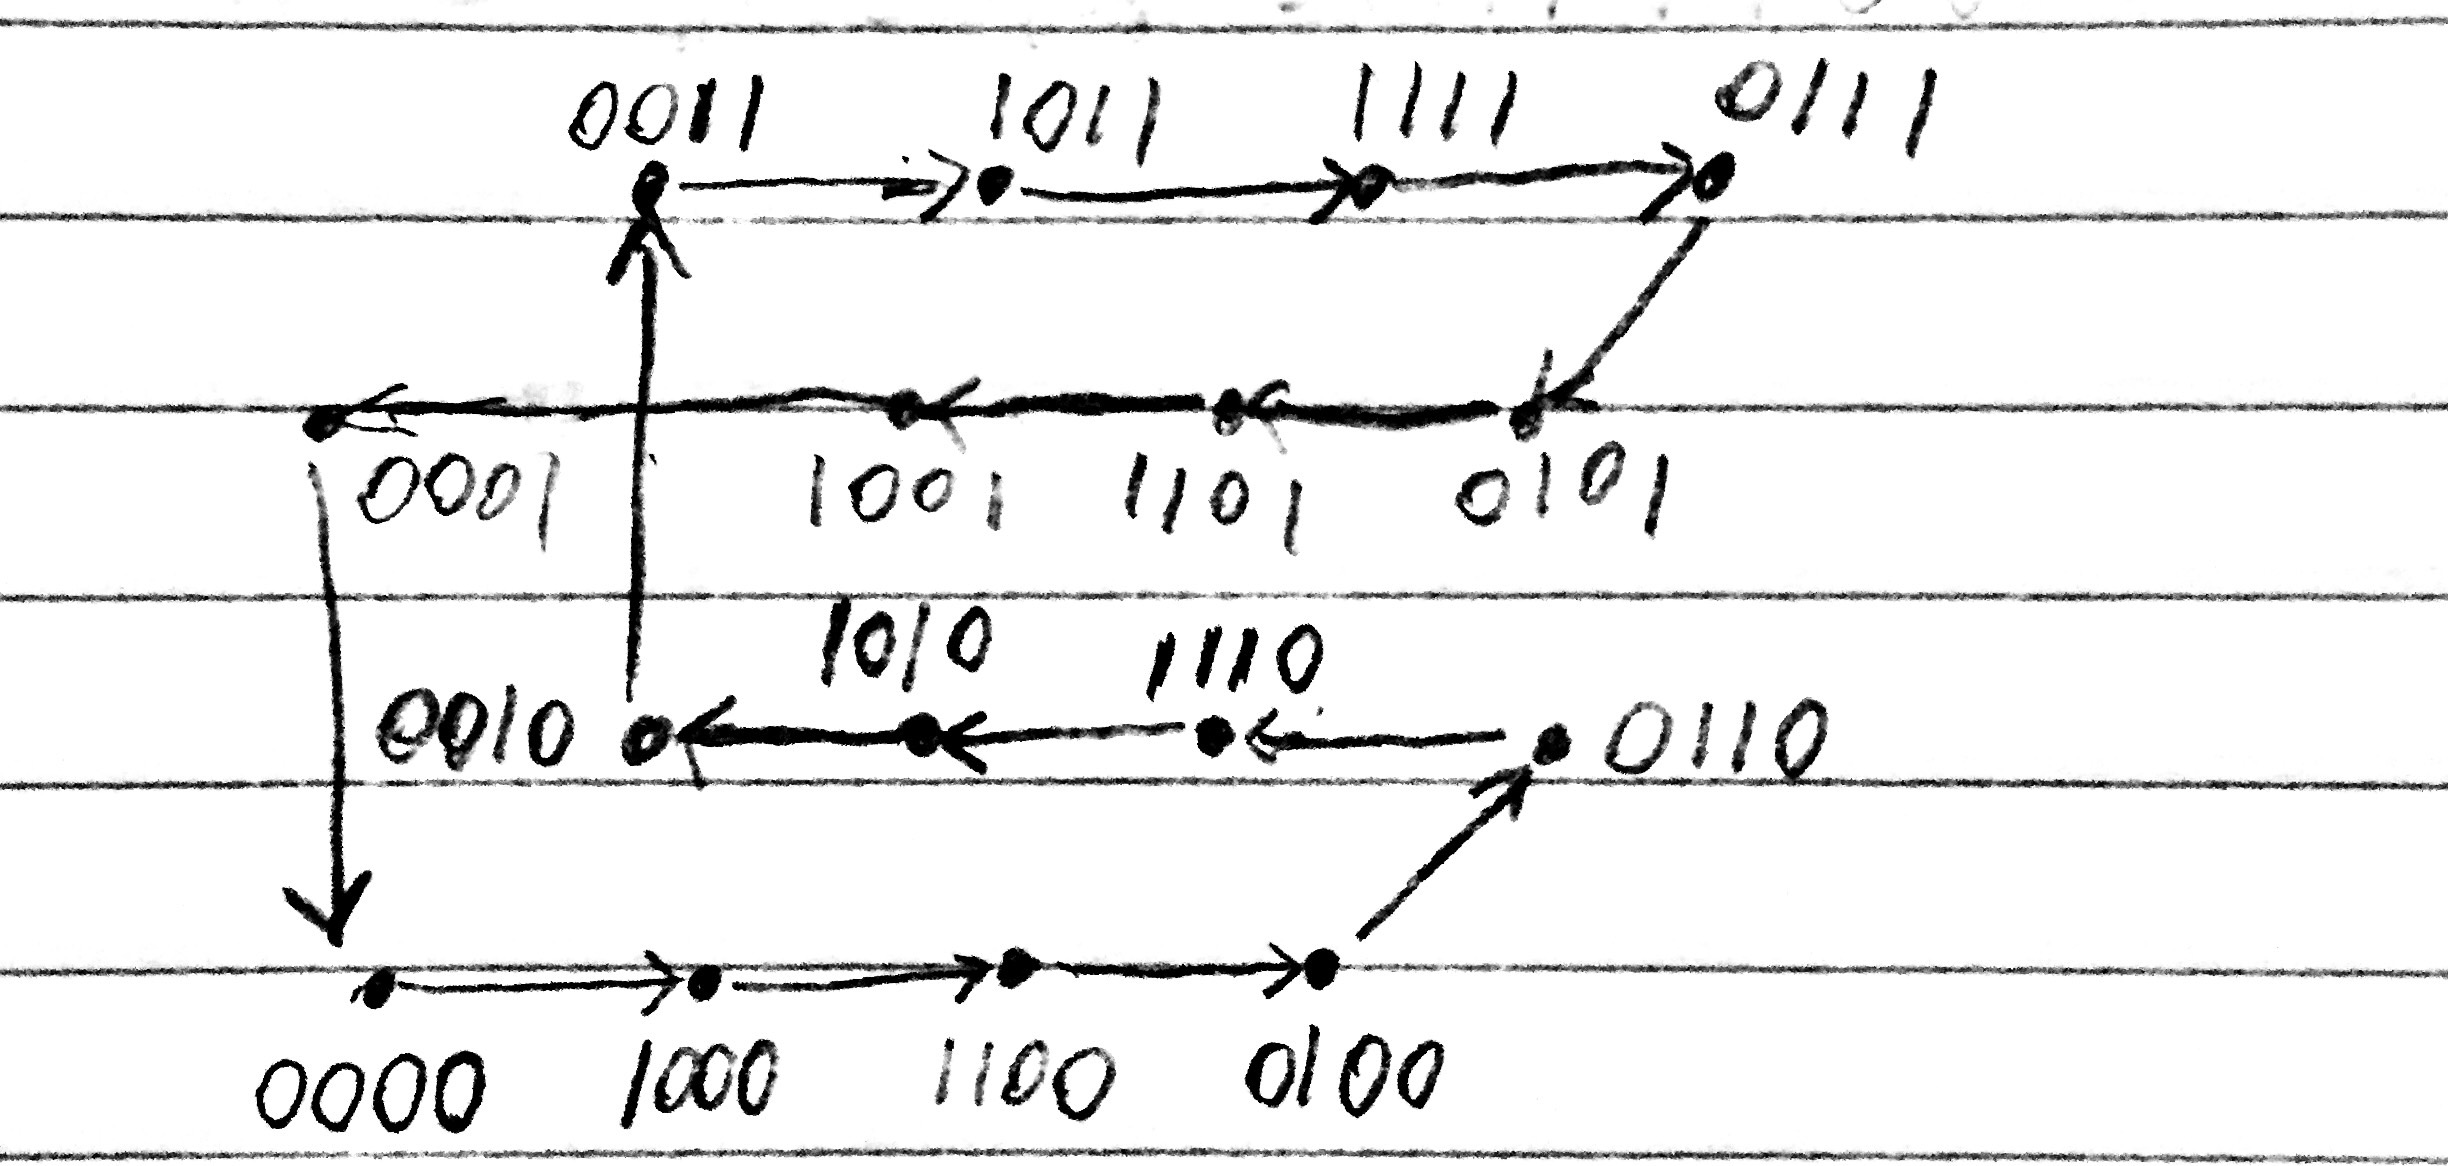 0011 1011 1111 0111
0001 1001 1101 0101
1010 1110
0010 0110
0000 1000 1100 0100